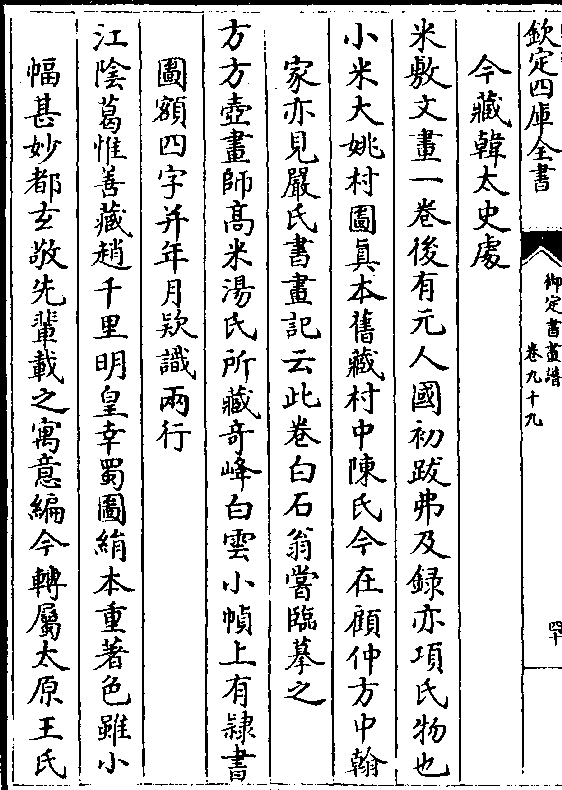 欽定四庫全書
御定書畫譜
卷九十九
四十
今藏韓太史處
米敷文畫一卷後有元人國初跋弗及録亦項氏物也
小米大姚村圖真本舊藏村中陳氏今在顧仲方中翰
家亦見嚴氏書畫記云此卷白石翁嘗臨摹之
方方壺畫師髙米湯氏所藏奇峰白雲小幀上有𨽻書
圖額四字并年月欵識兩行
江陰葛惟善藏趙千里明皇幸蜀圖絹本重著色雖小
幅甚妙都玄敬先輩載之寓意編今轉屬太原王氏